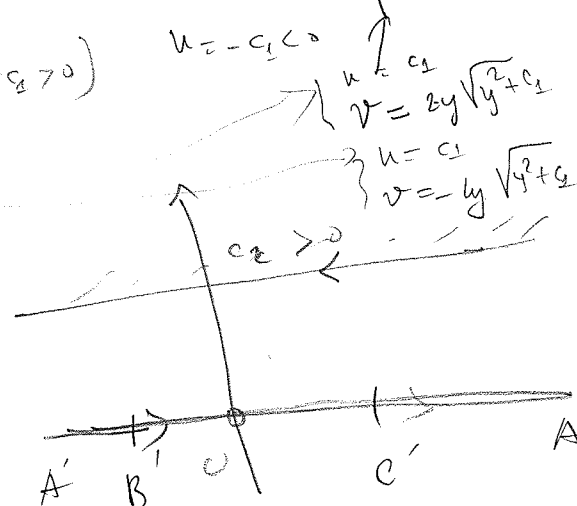 c₁ > 0)
u = -c₁ < 0
{ u = c₁
v = 2y√y²+c₁
} u = c₁
v = -2y√y²+c₁
c₂ > 0
A' B' O C' A